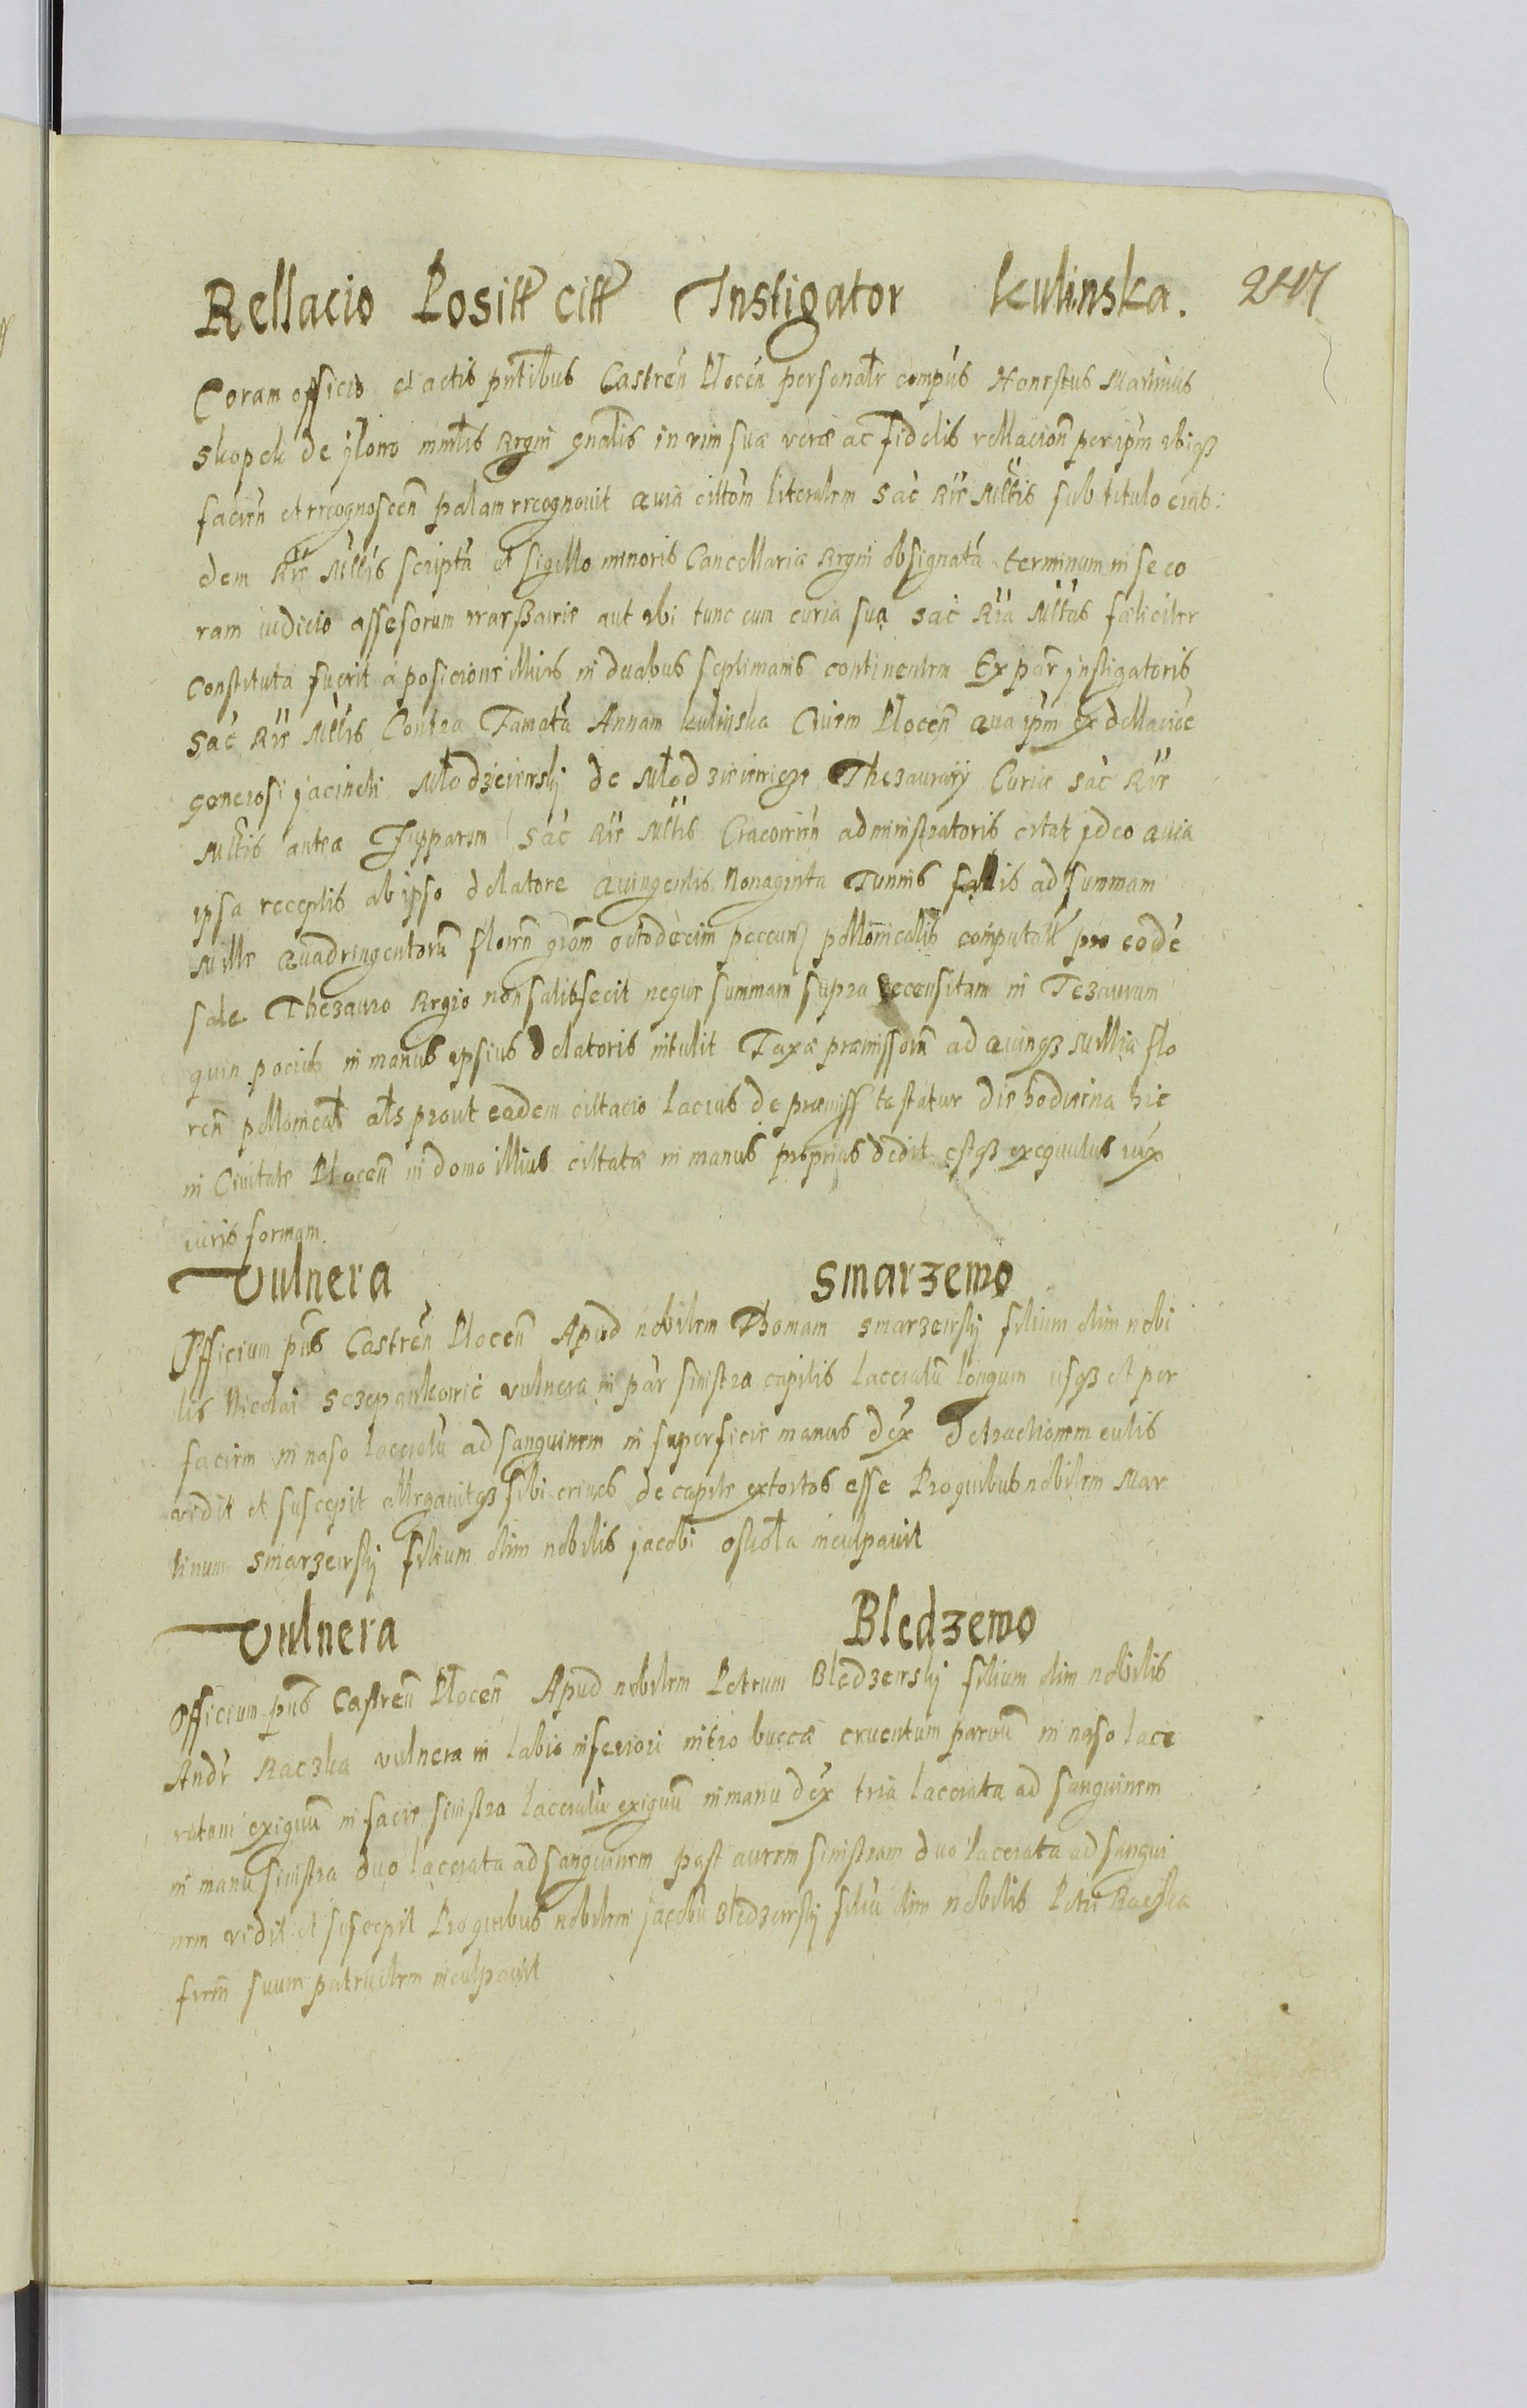 Rellacio Positt citt Instigator Kulinska. 2417
Coram officio et actis pntibus Castren Plocen personalr compns Honestus Martinus
Skopek de jlowo mnrlis Regni gnalis in vim suæ veræ ac fidelis rellacion per ipm ibiqз
facien et recognoscen palam recognovit quia cittom literalem Sac Rie Mttis sub titulo eius:
dem Rie Mttis scriptã et sigillo minoris Cancellariæ Regni obsignatã terminum in se co
ram iudicio assesorum Warszawie aut ubi tunc cum curia sua Sac Ria Mttas fæliciter
constituta fuerit a posicione illius in duabus septimanis continentem Ex par jnstigatoris
Sac Rie Mttis Contra Famatã Annam Kulinska Civem Plocen qua ipm ex dellacioe
generosi jacincti Młodzieiewskj de Młodzieiewicze Thezaurarij Curiæ Sac Rie
Mttis antea Zupparum Sac Rie Mttis Cracovien administratoris citat jdeo quia
ipsa receptis ab ipso delatore Quingentis Nonaginta Tunnis sallis ad summam
Mille Quadringentorũ floren grom octodecim peccun pollonicalis computatt pro eodẽ
sale Thezauro Regio non satisfecit neque summam supra recensitam in Tezaurum
quin pocius in manus ipsius delatoris intulit Taxæ præmissorũ ad quinqз Millia flo
ren pollonical als prout eadem cittacio lacius de præmiss testatur die hodierna hic
in Civitate Plocen in domo illius cittatæ in manus proprias dedit estqз exequutus iux
iuris formam.
Vulnera Smarzewo
Officium pns Castren Plocen Apud nobilem Thomam Smarzewskj filium olim nobi
lis Nicolai Sczepankowic vulnera in par sinistra capitis laceratũ longum usqз et per
faciem in naso laceratũ ad sanguinem in superficie manus dex detractionem cutis
vidit et suscepit allegavitqз sibi crines de capite extortos esse Pro quibus nobilem Mar
tinum Smarzewskj filium olim nobilis jacobi oskoła inculpavit
Vulnera Bledzewo
Officium pns Castren Plocen Apud nobilem Petrum Bledzewskj filium olim nobilis
Andr Raczka vulnera in labio inferiori intro buccæ cruentum parvũ in naso lace
ratum exiguũ in facie sinistra laceratũ exiguũ in manu dex tria lacerata ad sanguinem
in manu sinistra duo lacerata ad sanguinem post aurem sinistram duo lacerata ad sangui
nem vidit et suscepit Pro quibus nobilem jacobũ Bledzewskj filiũ olim nobilis Petri Raczka
frem suum patruelem inculpavit